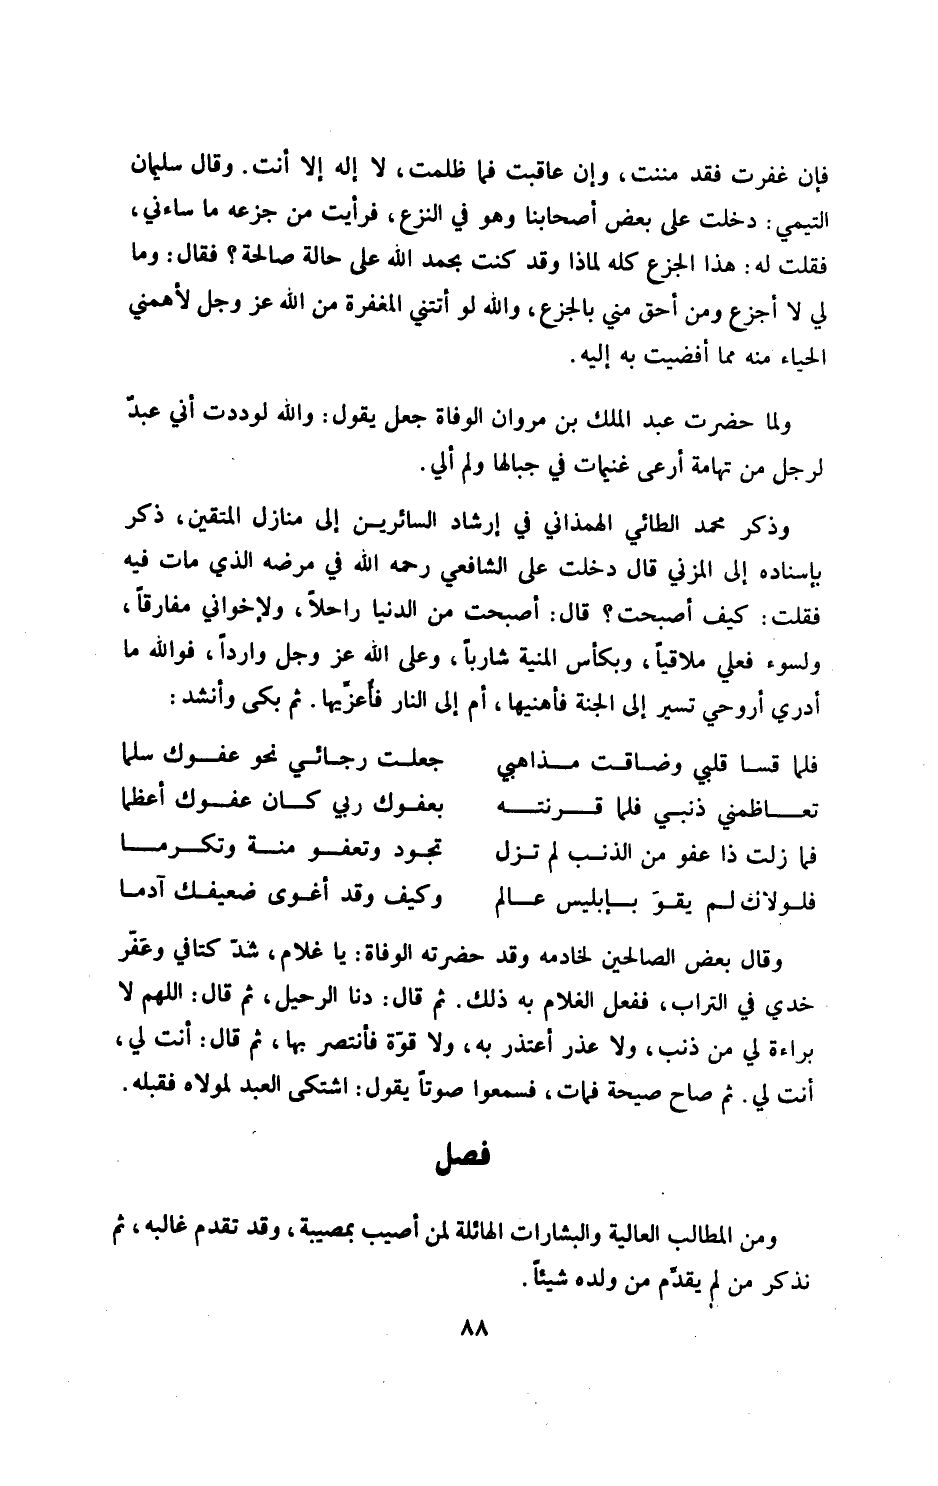 فإن غفرت فقد مننت، وإن عاقبت فما ظلمت، لا إله إلا أنت. وقال سليمان
التيمي: دخلت على بعض أصحابنا وهو في النزع، فرأيت من جزعه ما ساءني،
فقلت له: هذا الجزع كله لماذا وقد كنت بحمد الله على حالة صالحة؟ فقال: وما
لي لا أجزع ومن أحق مني بالجزع، والله لو أتتني المغفرة من الله عز وجل لأهمني
الحياء منه مما أفضيت به إليه.
ولما حضرت عبد الملك بن مروان الوفاة جعل يقول: والله لوددت أني عبدٌ
لرجل من تهامة أرعى غنيمات في جبالها ولم ألي.
وذكر محمد الطائي الهمذاني في إرشاد السائرين إلى منازل المتقين، ذكر
بإسناده إلى المزني قال دخلت على الشافعي رحمه الله في مرضه الذي مات فيه
فقلت: كيف أصبحت؟ قال: أصبحت من الدنيا راحلاً، ولإخواني مفارقاً،
ولسوء فعلي ملاقياً، وبكأس المنية شارباً، وعلى الله عز وجل وارداً، فوالله ما
أدري أروحي تسير إلى الجنة فأهنيها، أم إلى النار فأعزّيها. ثم بكى وأنشد:
فلما قسا قلبي وضاقت مذاهبي جعلت رجائي نحو عفوك سلما
تعاظمني ذنبي فلما قرنته بعفوك ربي كان عفوك أعظما
فما زلت ذا عفو من الذنب لم تزل تجود وتعفو منة وتكرما
فلولاك لم يقوَ بإبليس عالم وكيف وقد أغوى ضعيفك آدما
وقال بعض الصالحين لخادمه وقد حضرته الوفاة: يا غلام، شدّ كتافي وعَفّر
خدي في التراب، ففعل الغلام به ذلك. ثم قال: دنا الرحيل، ثم قال: اللهم لا
براءة لي من ذنب، ولا عذر أعتذر به، ولا قوّة فأنتصر بها، ثم قال: أنت لي،
أنت لي. ثم صاح صيحة فمات، فسمعوا صوتاً يقول: اشتكى العبد لمولاه فقبله.
فصل
ومن المطالب العالية والبشارات الهائلة لمن أصيب بمصيبة، وقد تقدم غالبه، ثم
نذكر من لم يقدّم من ولده شيئاً.
٨٨